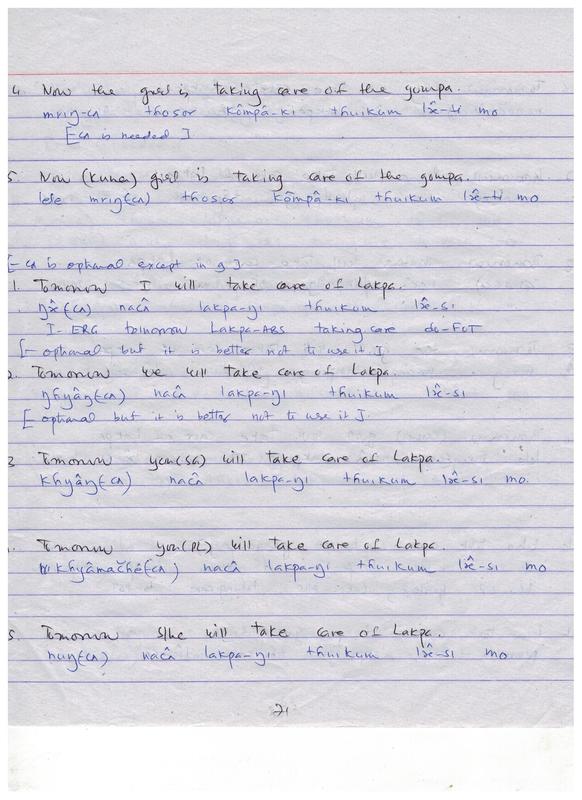 4. Now the girl is taking care of the gompa.
mrıŋ-ʦʌ thosor kômpâ-kı thuikum læ̂-ti mo
[ʦʌ is needed]
5. Now (kuna) girl is taking care of the gompa.
lele mrıŋ(ʦʌ) thosor kômpâ-kı thuikum læ̂-ti mo
[-ʦʌ is optional except in 9]
1. Tomorrow I will take care of Lakpa.
ŋæ̂(ʦʌ) nacʌ̂ lakpa-ŋı thuikum læ̂-sı
I-ERG tomorrow Lakpa-ABS taking care do-FUT
[- optional but it is better not to use it.]
2. Tomorrow we will take care of Lakpa.
ŋhyâŋ(ʦʌ) nacʌ̂ lakpa-ŋı thuikum læ̂-sı
[optional but it is better not to use it].
3 Tomorrow you(SG) will take care of Lakpa.
khyâŋ(ʦʌ) nacʌ̂ lakpa-ŋı thuikum læ̂-sı mo.
. Tomorrow you(PL) will take care of Lakpa.
khyâmačhê(ʦʌ) nacâ lakpa-ŋı thuikum læ̂-sı mo
5. Tomorrow s/he will take care of Lakpa.
huŋ(ʦʌ) nacʌ̂ lakpa-ŋı thuikum læ̂-sı mo
71